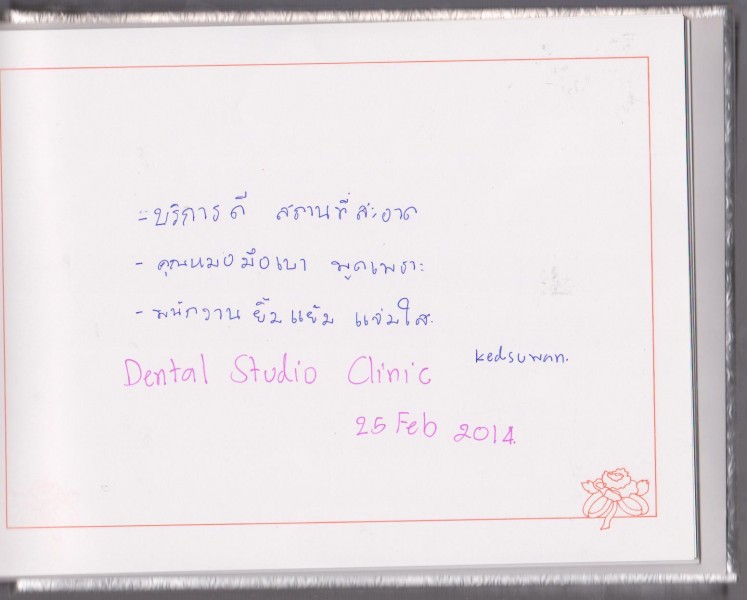 - บริการดี สถานที่สะอาด
- คุณหมอมือเบา พูดเพราะ
- พนักงานยิ้มแย้ม แจ่มใส.
kedsuwan.
Dental Studio Clinic
25 Feb 2014.